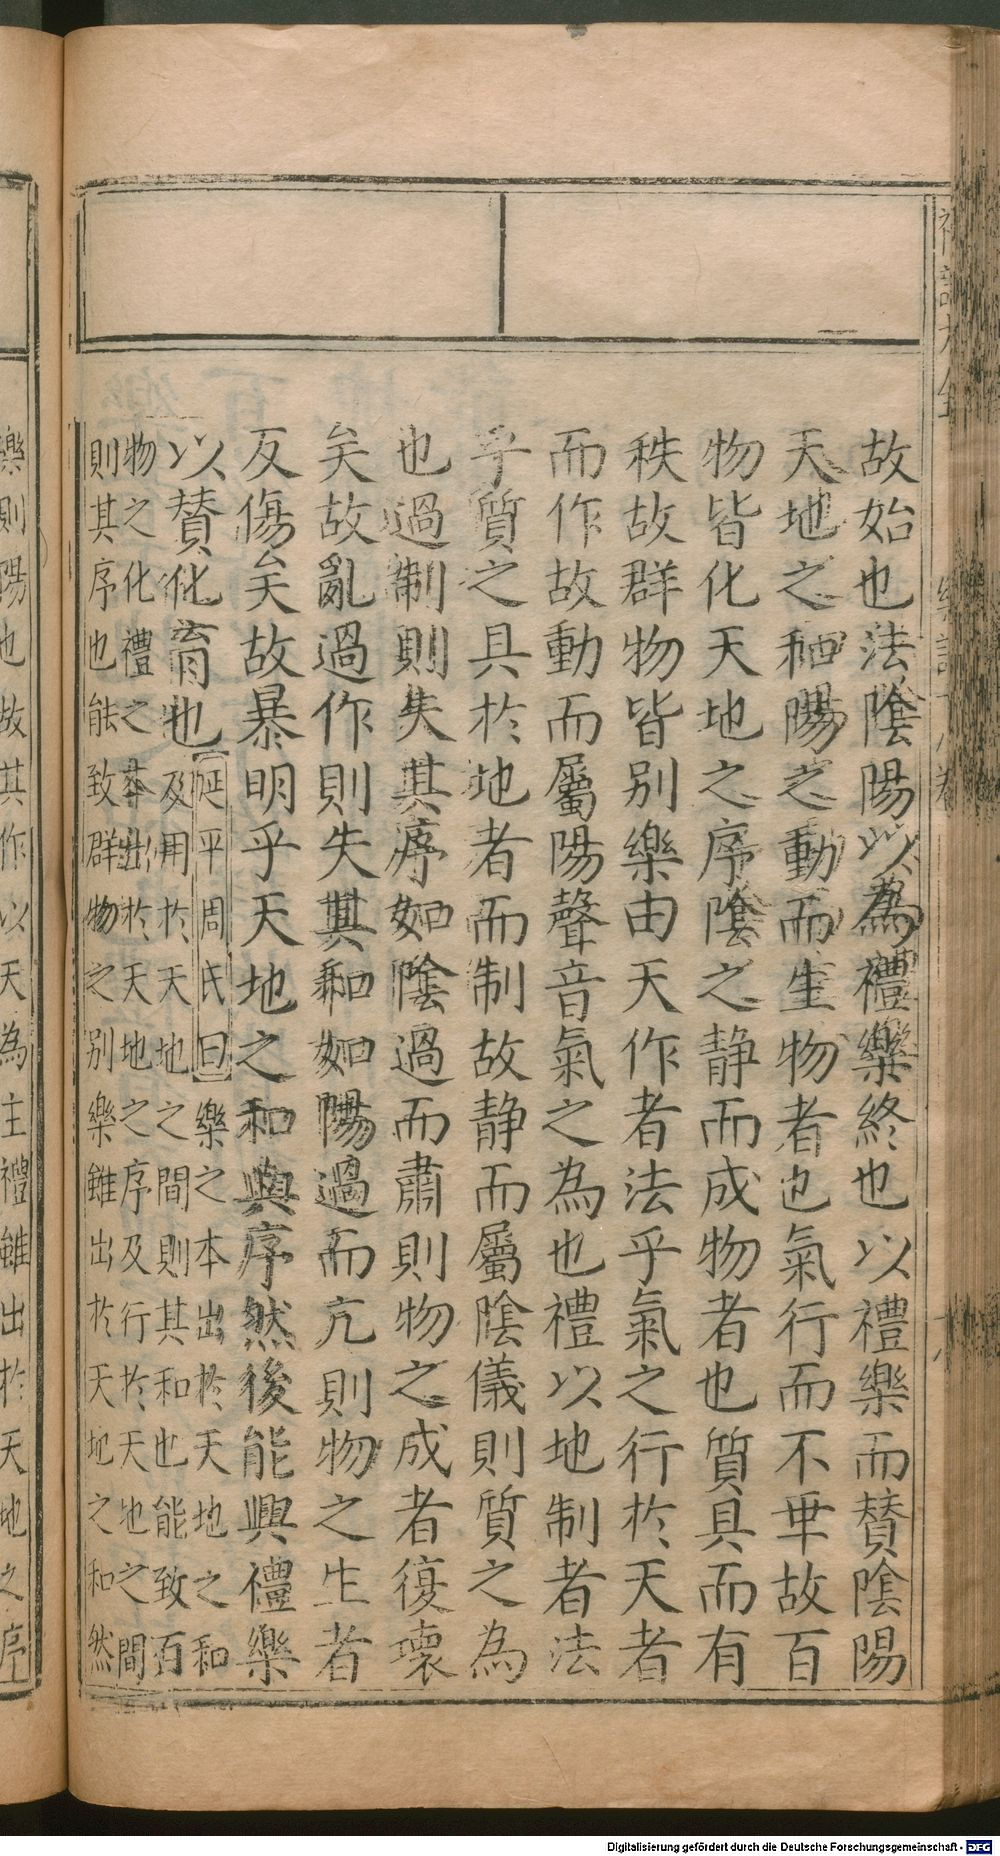 故始也法陰陽以為禮樂終也以禮樂而賛陰陽
天地之和陽之動而生物者也氣行而不乖故百
物皆化天地之序陰之静而成物者也質具而有
秩故群物皆别樂由天作者法乎氣之行於天者
而作故動而屬陽聲音氣之為也禮以地制者法
乎質之具於地者而制故静而屬陰儀則質之為
也過制則失其序如陰過而肅則物之成者復壞
矣故亂過作則失其和如陽過而亢則物之生者
反傷矣故暴明乎天地之和與序然後能興禮樂
以賛化育也
延平周氏曰樂之本出於天地之和
及用於天地之間則其和也能致百
物之化禮之本出於天地之序及行於天地之間
則其序也能致群物之别樂雖出於天地之和然
樂則陽也故其作以天為主禮雖出於天地之序
Digitalisierung gefördert durch die Deutsche Forschungsgemeinschaft - DFG